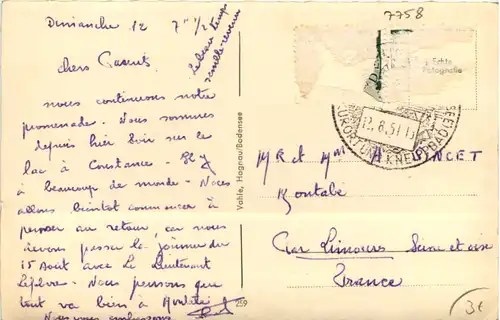 7758
Dimanche 12 7h 1/2
Le beau temps
semble revenu
chers Parents
nous continuons notre
promenade. Nous sommes
depuis hier soir sur le
lac à Constance. Il y
à beaucoup de monde. Nous
allons bientôt commencer à
penser au retour, car nous
devons passer la journée du
15 Août avec le Lieutenant
Lefebvre. Nous pensons que
tout va bien à
Nous vous embrassons
Vahle, Hagnau/Bodensee
259
Echte
Fotografie
12.8.51
KURORT UND KNEIPPBAD
Mr et Mme
Montabé
Par Limours Seine et oise
France
3€